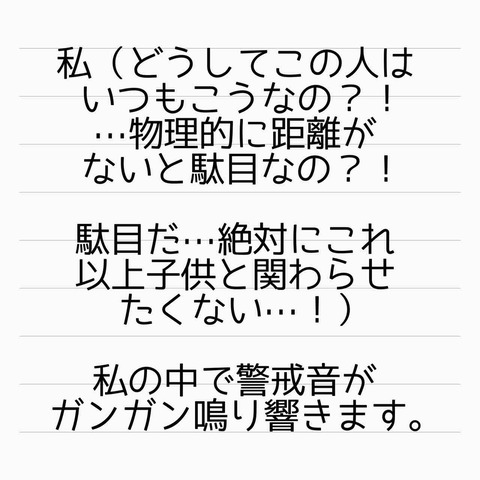 私（どうしてこの人は
いつもこうなの？！
…物理的に距離が
ないと駄目なの？！
駄目だ…絶対にこれ
以上子供と関わらせ
たくない…！）
私の中で警戒音が
ガンガン鳴り響きます。